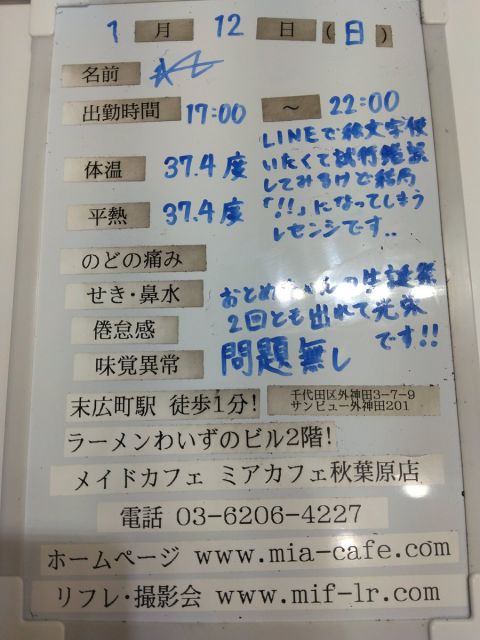 1 月 12 日 (日)
名前
出勤時間 17:00 ～ 22:00
LINEで絵文字使
いたくて試行錯誤
してみるけど結局
「!!」になってしまう
レセンシです..
体温 37.4度
平熱 37.4度
のどの痛み
せき・鼻水
倦怠感
味覚異常
おとめちゃんの生誕祭
2回とも出れて光栄
です!!
問題無し
末広町駅 徒歩1分!
千代田区外神田3-7-9
サンビュー外神田201
ラーメンわいずのビル2階!
メイドカフェ ミアカフェ秋葉原店
電話 03-6206-4227
ホームページ www.mia-cafe.com
リフレ・撮影会 www.mif-lr.com